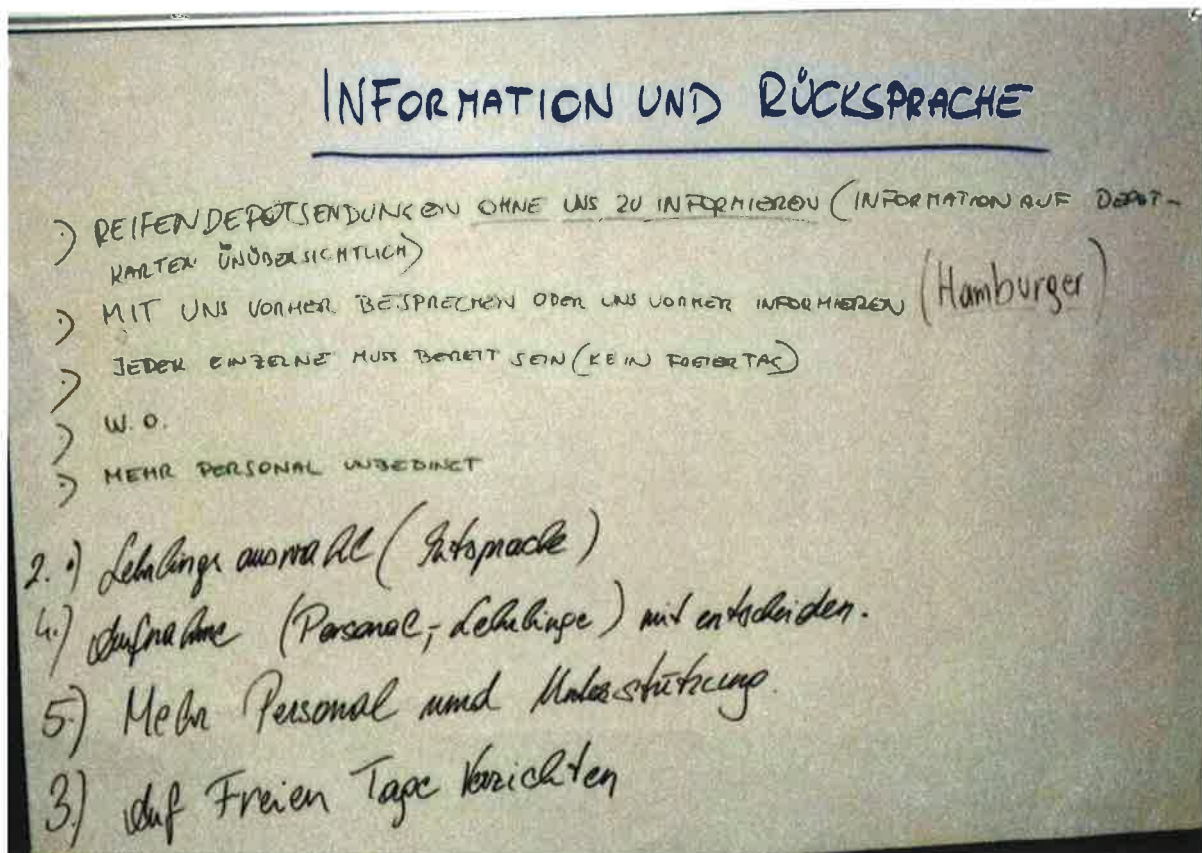 INFORMATION UND RÜCKSPRACHE
·) REIFENDEPOTSENDUNGEN OHNE UNS ZU INFORMIEREN (INFORMATION AUF DEPOT-
KARTEN UNÜBERSICHTLICH)
·) MIT UNS VORHER BESPRECHEN ODER UNS VORHER INFORMIEREN (Hamburger)
·) JEDER EINZELNE MUSS BEREIT SEIN (KEIN FREIER TAG)
·) W. O.
·) MEHR PERSONAL UNBEDINGT
2.·) Lehrlings auswahl ()
4.) Aufnahme (Personal,- Lehrlinge) mit entscheiden.
5.) Mehr Personal und Unterstützung.
3.) Auf Freien Tage Verzichten